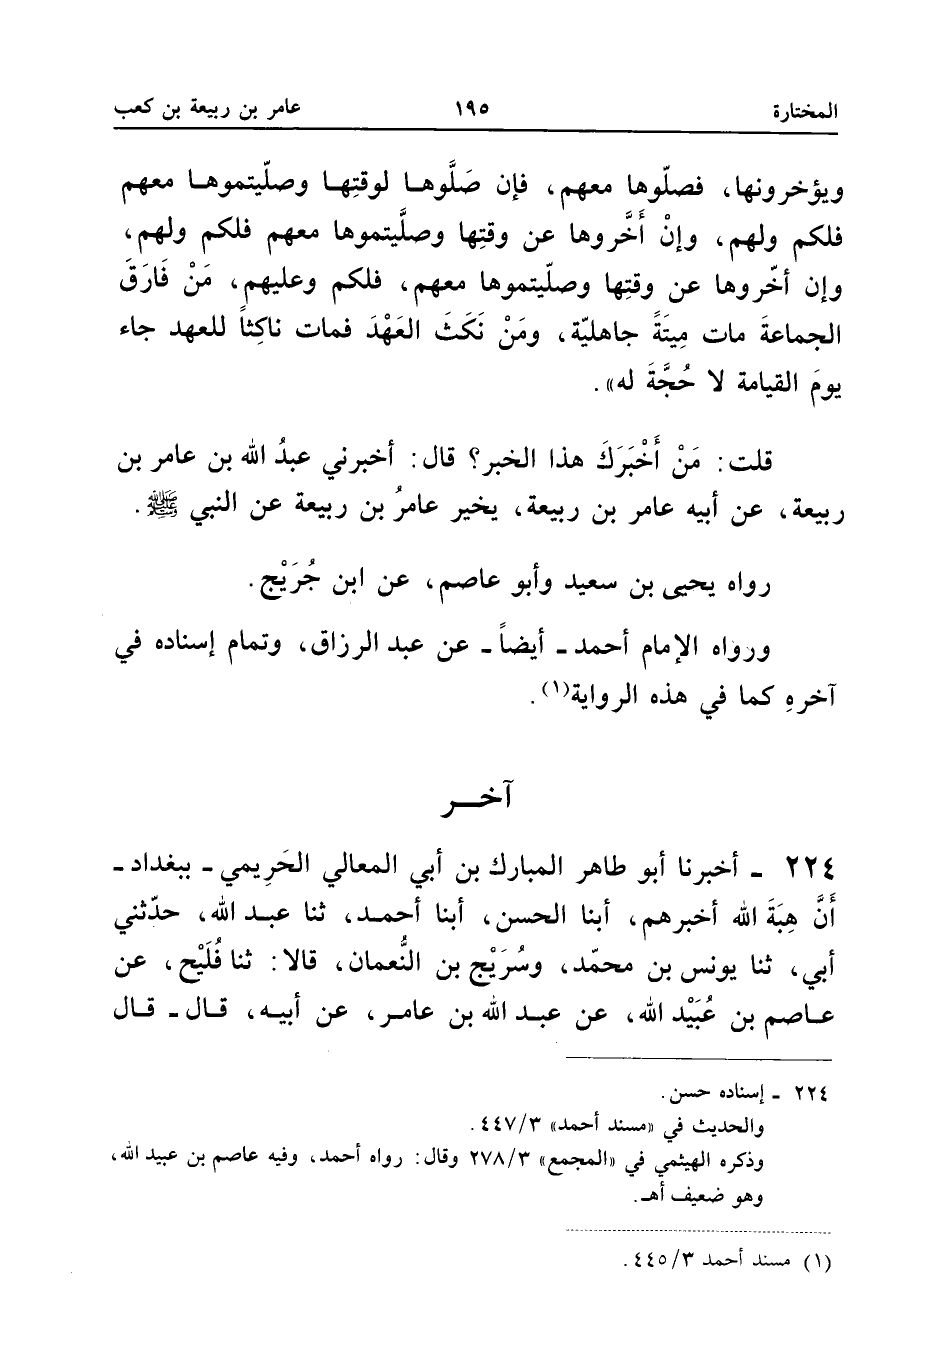 المختارة ١٩٥ عامر بن ربيعة بن كعب
ويؤخرونها، فصلّوها معهم، فإن صَلَّوهـا لوقتِهـا وصلّيتموهـا معهم
فلكم ولهم، وإنْ أَخَّروها عن وقتِها وصلَّيتموها معهم فلكم ولهم،
وإن أخّروها عن وقتِها وصلّيتموها معهم، فلكم وعليهم، مَنْ فَارَقَ
الجماعةَ مات مِيتَةً جاهليّة، ومَنْ نَكَثَ العَهْدَ فمات ناكِثاً للعهد جاء
يومَ القيامة لا حُجَّةَ له».
قلت: مَنْ أَخْبَرَكَ هذا الخبر؟ قال: أخبرني عبدُ الله بن عامر بن
ربيعة، عن أبيه عامر بن ربيعة، يخير عامرُ بن ربيعة عن النبي ﷺ.
رواه يحيى بن سعيد وأبو عاصم، عن ابن جُرَيْج.
ورواه الإمام أحمد ـ أيضاً ـ عن عبد الرزاق، وتمام إسناده في
آخرهِ كما في هذه الرواية(١).
آخـــر
٢٢٤ ـ أخبرنا أبو طاهر المبارك بن أبي المعالي الحَرِيمي ـ ببغداد ـ
أَنَّ هِبَةَ الله أخبرهم، أبنا الحسن، أبنا أحمـد، ثنا عبـد الله، حدّثني
أبي، ثنا يونس بن محمّد، وسُرَيْج بن النُّعمان، قالا: ثنا فُلَيْح، عن
عـاصم بن عُبَيْد الله، عن عبـد الله بن عامـر، عن أبيـه، قـال ـ قـال
٢٢٤ ـ إسناده حسن.
والحديث في «مسند أحمد» ٤٤٧/٣.
وذكره الهيثمي في «المجمع» ٢٧٨/٣ وقال: رواه أحمد، وفيه عاصم بن عبيد الله،
وهو ضعيف أهـ.
(١) مسند أحمد ٤٤٥/٣.